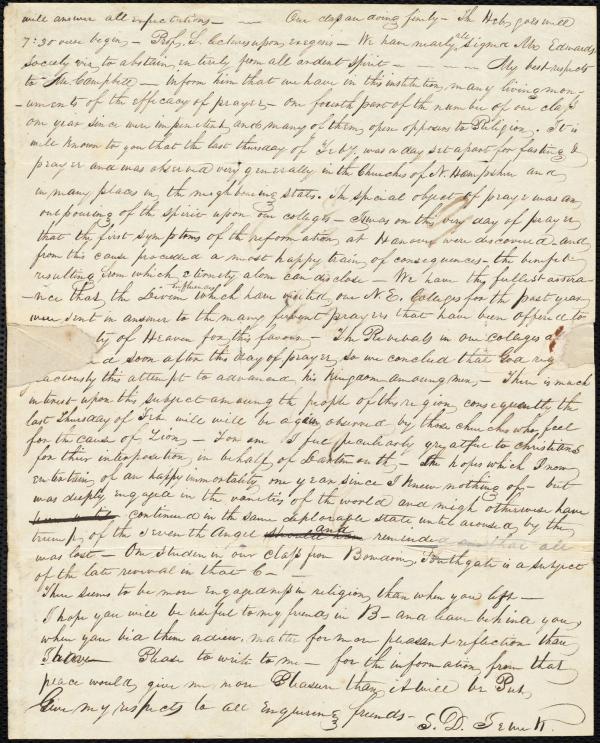 will answer all expectations — — Our class are doing finely — The Heb. goes well
7:30 over begin — Prof. S. lectures upon exegesis — We have nearly all signed Mr. Edwards
Society viz to abstain entirely from all ardent spirit — — — — My best respects
to Mr. Campbell — Inform him that we have in this institution, many living mon-
uments of the efficacy of prayer — One fourth part of the number of our class
one year since were impenitent, and many of them open opposers to Religion. It is
well known to you that the last thursday of Feby. was a day set apart for fasting &
prayer and was observed very generally in the Churches of N. Hampshire and
in many places in the neighbouring states. The special object of prayer was an
outpouring of the Spirit upon our colleges — It was on this very day of prayer
that the first symptoms of the reformation, at Hanover were discovered — and
from this cause proceeded a most happy train of consequences — the benefits
resulting from which eternity alone can disclose — We have the fullest assura-
nce that the Divine influences which have visited our N.E. Colleges for the past year
were sent in answer to the many fervent prayers that have been offered to
ty of Heaven for this favour — The Revivals in our colleges
d soon after this day of prayer, so we concluded that God
aciously this attempt to advanced his kingdom among men — There is much
interest upon this subject amoung the people of this region, consequently the
last Thursday of Feb will will be again observed by those churches who feel
for the cause of Zion, — You sir I feel peculiarly grateful to christians
for their interposition, in behalf of Dartmouth — The hopes which I now
entertain, of an happy immortality one year since I knew nothing of — but
was deeply engaged in the vanities of the world and might otherwise have
continued in the same deplorable state, until aroused by the
trump of the Seventh Angel and reminded that all
was lost — One Student in our class from Bowdoin, Southgate is a subject
of the late revival in that C —
There seems to be more engagedness in religion, than when you left —
I hope you will be useful to my friends in B — and leave behind you,
when you bid them adieu, matter for more pleasant reflection than
Tators — Please to write to me — for the information from that
peace would give me more Pleasure than
Give my respects to all enquiring friends — S. D.